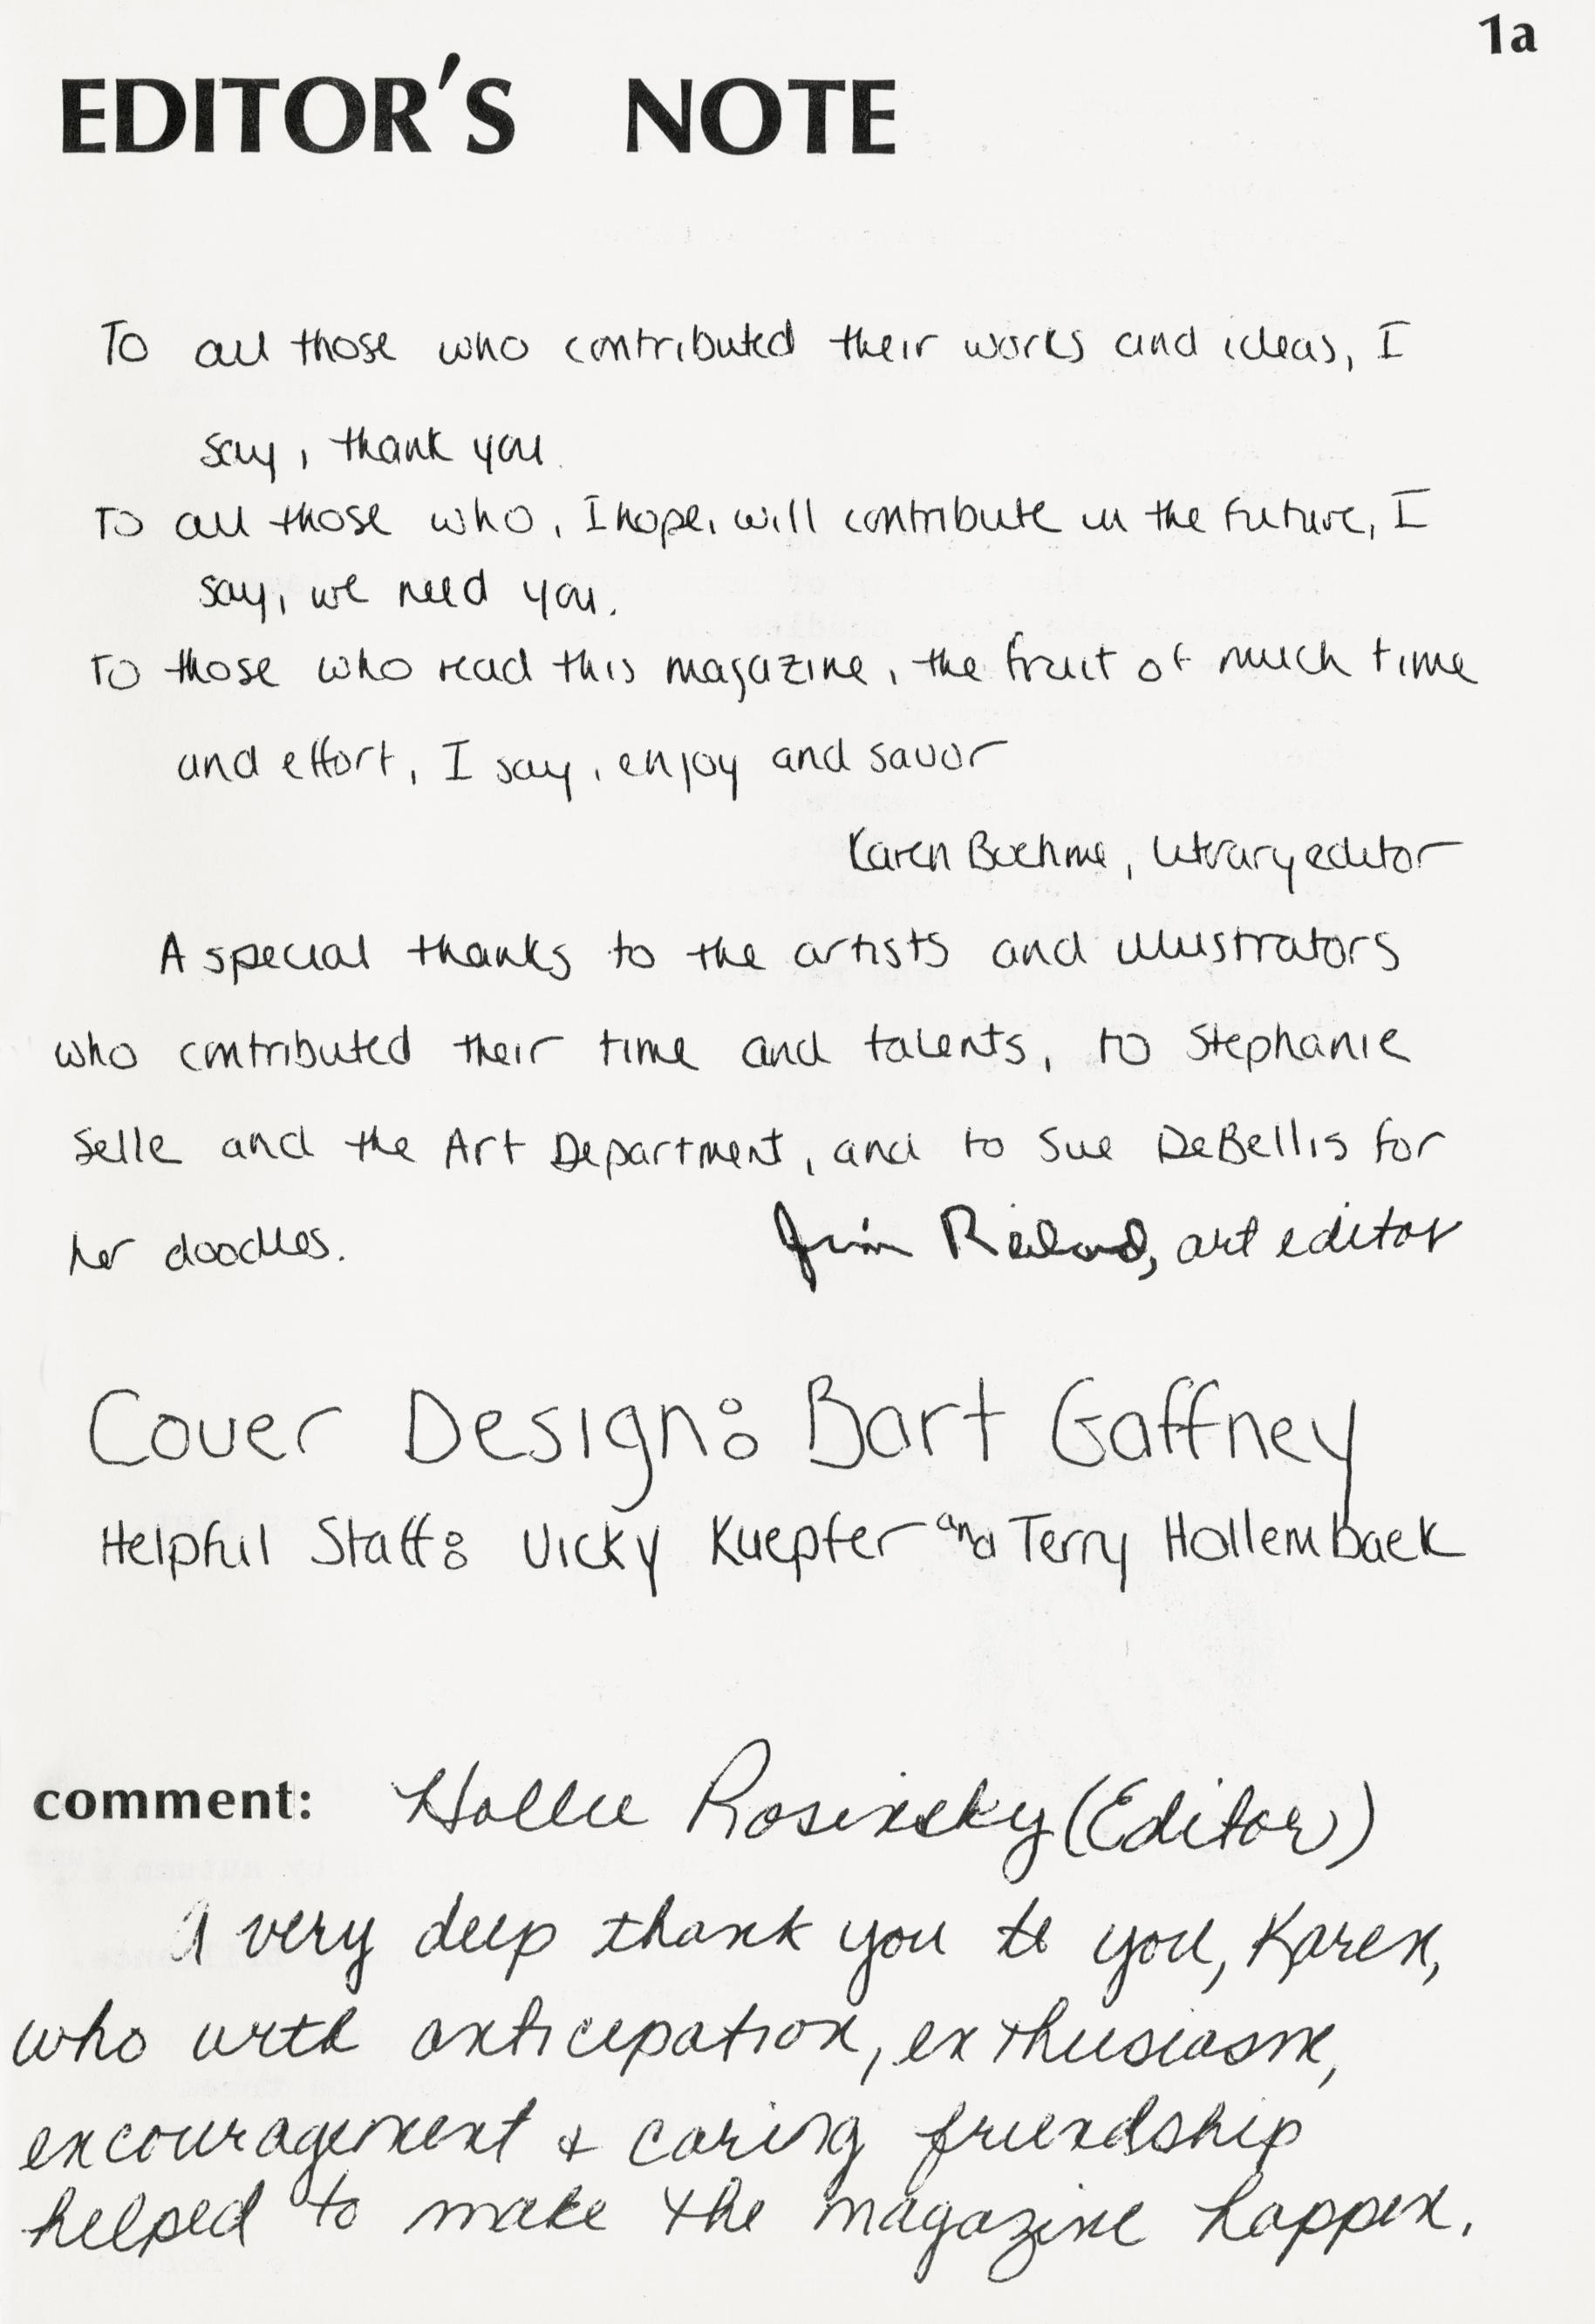 1a
EDITOR'S NOTE
To all those who contributed their works and ideas, I
say, thank you.
To all those who, I hope, will contribute in the future, I
say, we need you.
To those who read this magazine, the fruit of much time
and effort, I say, enjoy and savor
Karen Boehme, literary editor
A special thanks to the artists and illustrators
who contributed their time and talents, to Stephanie
Selle and the Art Department, and to Sue DeBellis for
her doodles.
Jim , art editor
Cover Design: Bart Gaffney
Helpful Staff: Vicky Kuepfer and Terry Hollembaek
comment: Hollie Rosinsky (Editor)
A very deep thank you to you, Karen,
who with anticipation, enthusiasm,
encouragement & caring friendship
helped to make the magazine happen.